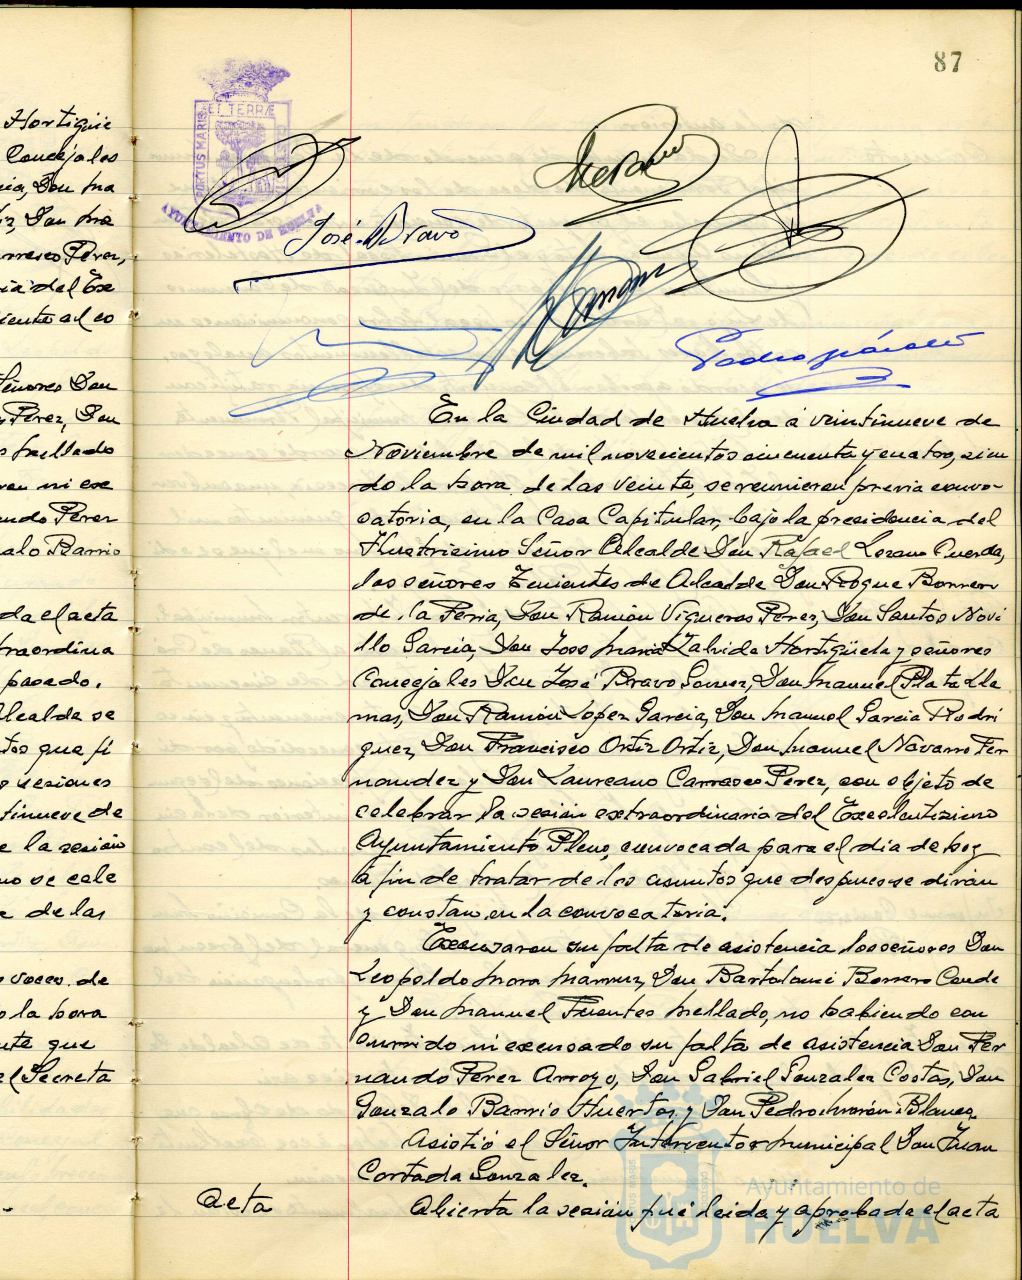 87
ET TERRÆ
PORTUS MARIS
AYUNTAMIENTO DE HUELVA
José Bravo
Hortigüe
Concejales
ria, Don Ma
Don Ma
rrasco Perez,
ria del Ex
diente al co
Señores Don
Perez, Don
Mellado
ron ni exc
ando Perez
zalo Barrio
da el acta
traordina
pasado.
Alcalde se
tos que fi
sesiones
tinueve de
e la sesión
no se cele
e de las
s voces de
o la hora
nte que
el Secreta
En la Ciudad de Huelva a veintinueve de
Noviembre de mil novecientos cincuenta y cuatro, sien
do la hora de las veinte, se reunieron previa convo-
catoria, en la Casa Capitular, bajo la presidencia del
Ilustrisimo Señor Alcalde Don Rafael Lozano Cuerda,
los señores Tenientes de Alcalde Don Roque Borrero
de la Feria, Don Ramón Vigueras Perez, Don Santos Novi
llo Garcia, Don Jose Maria Zalvide Hortigüela y señores
Concejales Don José Bravo Gomez, Don Manuel Plata Lla
mas, Don Ramón Lopez Garcia, Don Manuel Garcia Rodri
guez, Don Francisco Ortiz Ortiz, Don Manuel Navarro Fer
nandez y Don Laureano Carrasco Perez, con objeto de
celebrar la sesión extraordinaria del Excelentisimo
Ayuntamiento Pleno, convocada para el dia de hoy
a fin de tratar de los asuntos que despues se dirán
y constan en la convocatoria.
Excusaron su falta de asistencia los señores Don
Leopoldo Mora Don Bartolomé Borrero Conde
y Don Manuel Fuentes Mellado, no habiendo con
currido ni excusado su falta de asistencia Don Fer
nando Perez Arroyo, Don Gabriel Gonzalez Costas, Don
Gonzalo Barrio Huertos y Don Pedro Morón Blanco.
Asistió el Señor Interventor Municipal Don Juan
Cortada Gonzalez.
Acta
Abierta la sesión fué leida y aprobada el acta
Ayuntamiento de
HUELVA